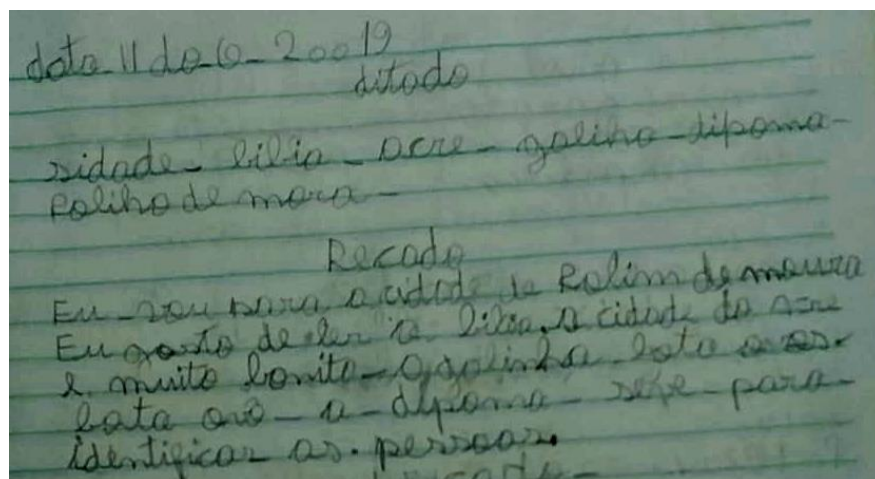 data 11 do 6 - 20019
ditado
sidade - bilia - acre - galiha - dipoma -
Roliho de mora -
Recado
Eu - vou para a cidade de Rolim de moura
Eu gosto de ler a bilia. A cidade do acre
e muito bonito - A galinha bota
bota ovo - a - dipoma - para -
identificar as pessoas.